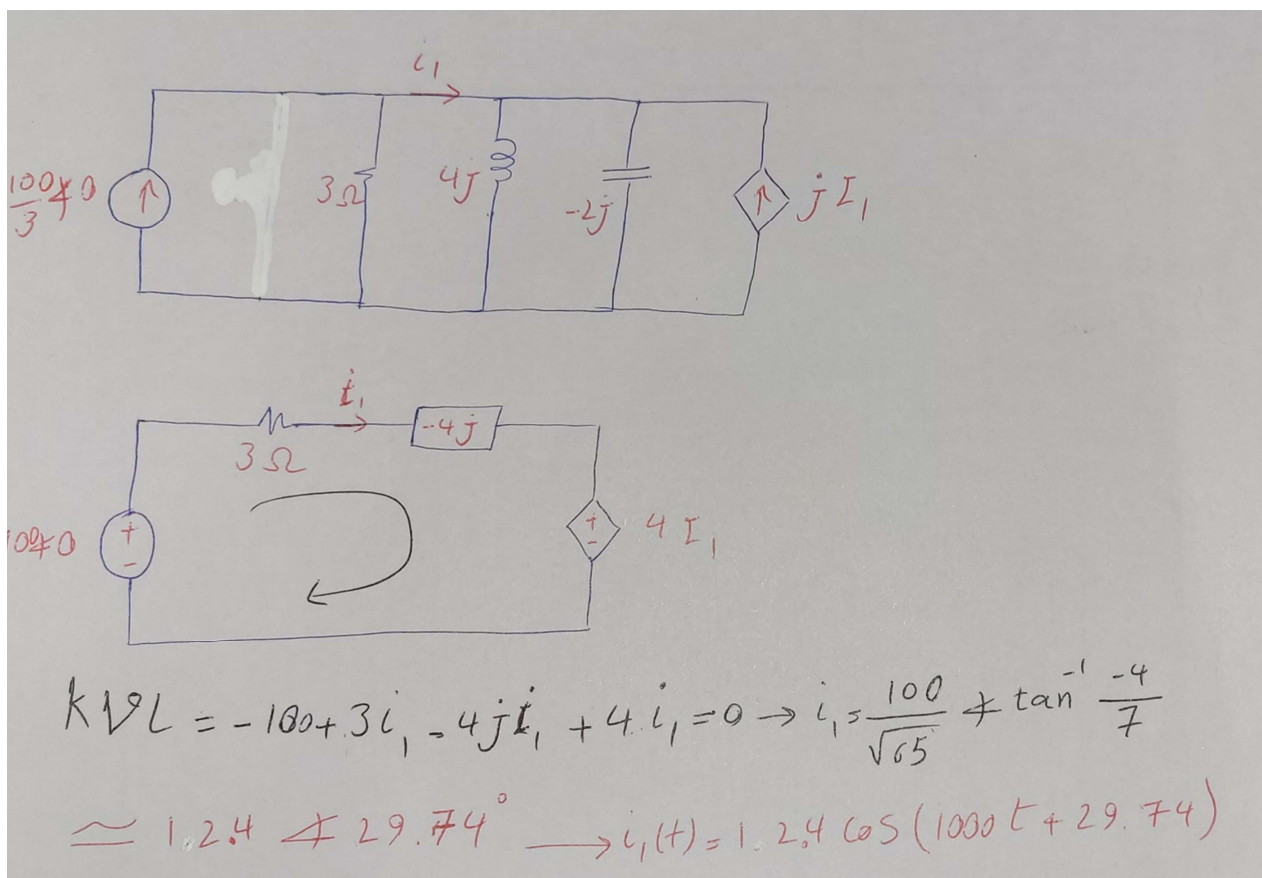 i₁
100/3 ∡0
3Ω
4j
-2j
jI₁
i₁
3Ω
-4j
+
-
+
-
4 I₁
KVL = -100 + 3i₁ - 4ji₁ + 4i₁ = 0 → i₁ = 100/√65 ∡ tan⁻¹ -4/7
≃ 12.4 ∡ 29.74° → i₁(t) = 12.4 cos(1000t + 29.74)